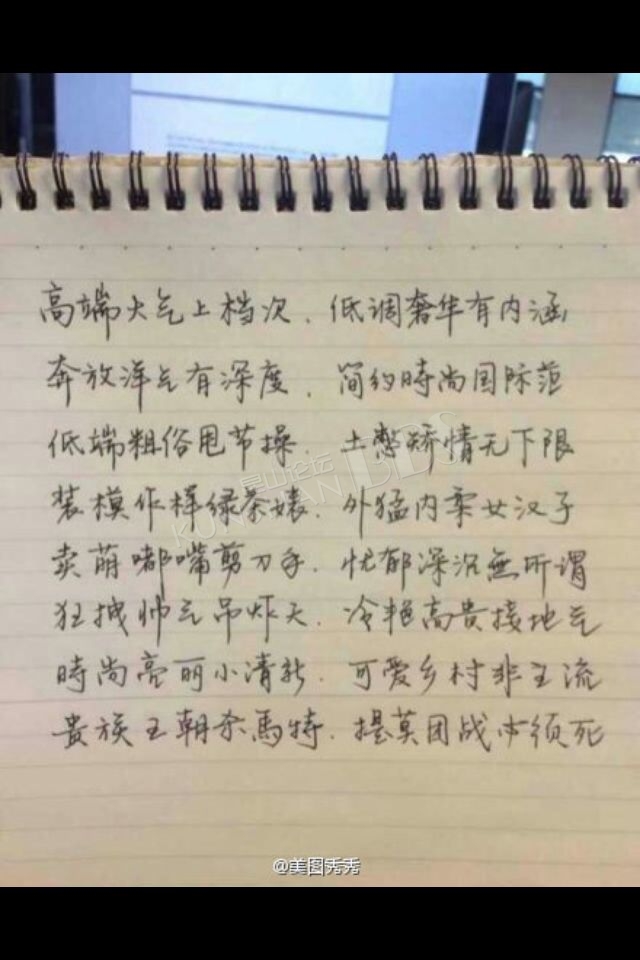 高端大气上档次.低调奢华有内涵
奔放洋气有深度.简约時尚国际范
低端粗俗甩节操.土憋矫情无下限
昆山论坛
KUNSHAN BBS
装模作样绿茶婊.外猛内柔女汉子
卖萌嘟嘴剪刀手.忧郁深沉無所谓
狂拽帅气吊炸天.冷艳高贵接地气
時尚亮丽小清新.可爱乡村非主流
贵族王朝杀馬特.提莫团战必须死
@美图秀秀